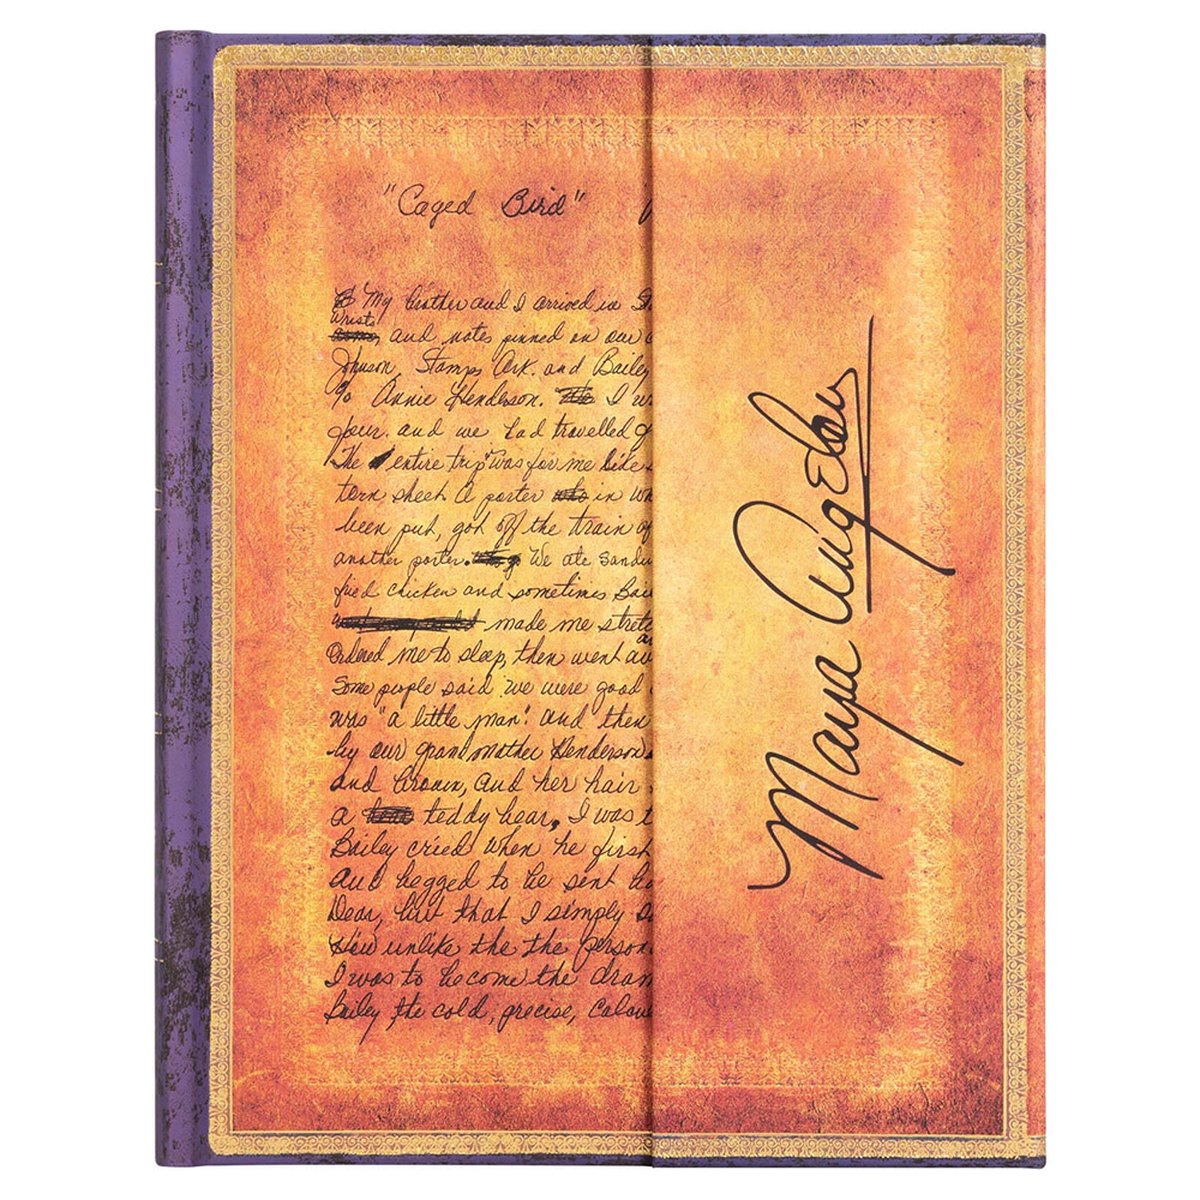 "Caged Bird"
My brother and I arrived in St
Wrists
arms, and notes pinned on our
Johnson, Stamps Ark. and Bailey
c/o Annie Henderson. I w
four. and we had travelled
The entire trip was for me like
torn sheet A porter who in wh
been put, got off the train
another porter. We ate sand
fried chicken and sometimes Bai
made me stret
Ordered me to sleep, then went aw
Some people said we were good
was "a little man". and then
by our grandmother Henderson
and brown, and her hair
a teddy bear, I was t
Bailey cried when he first
and begged to be sent ho
Dear, but that I simply
How unlike the the person
I was to become the dram
Bailey, the cold, precise,
Maya Angelou